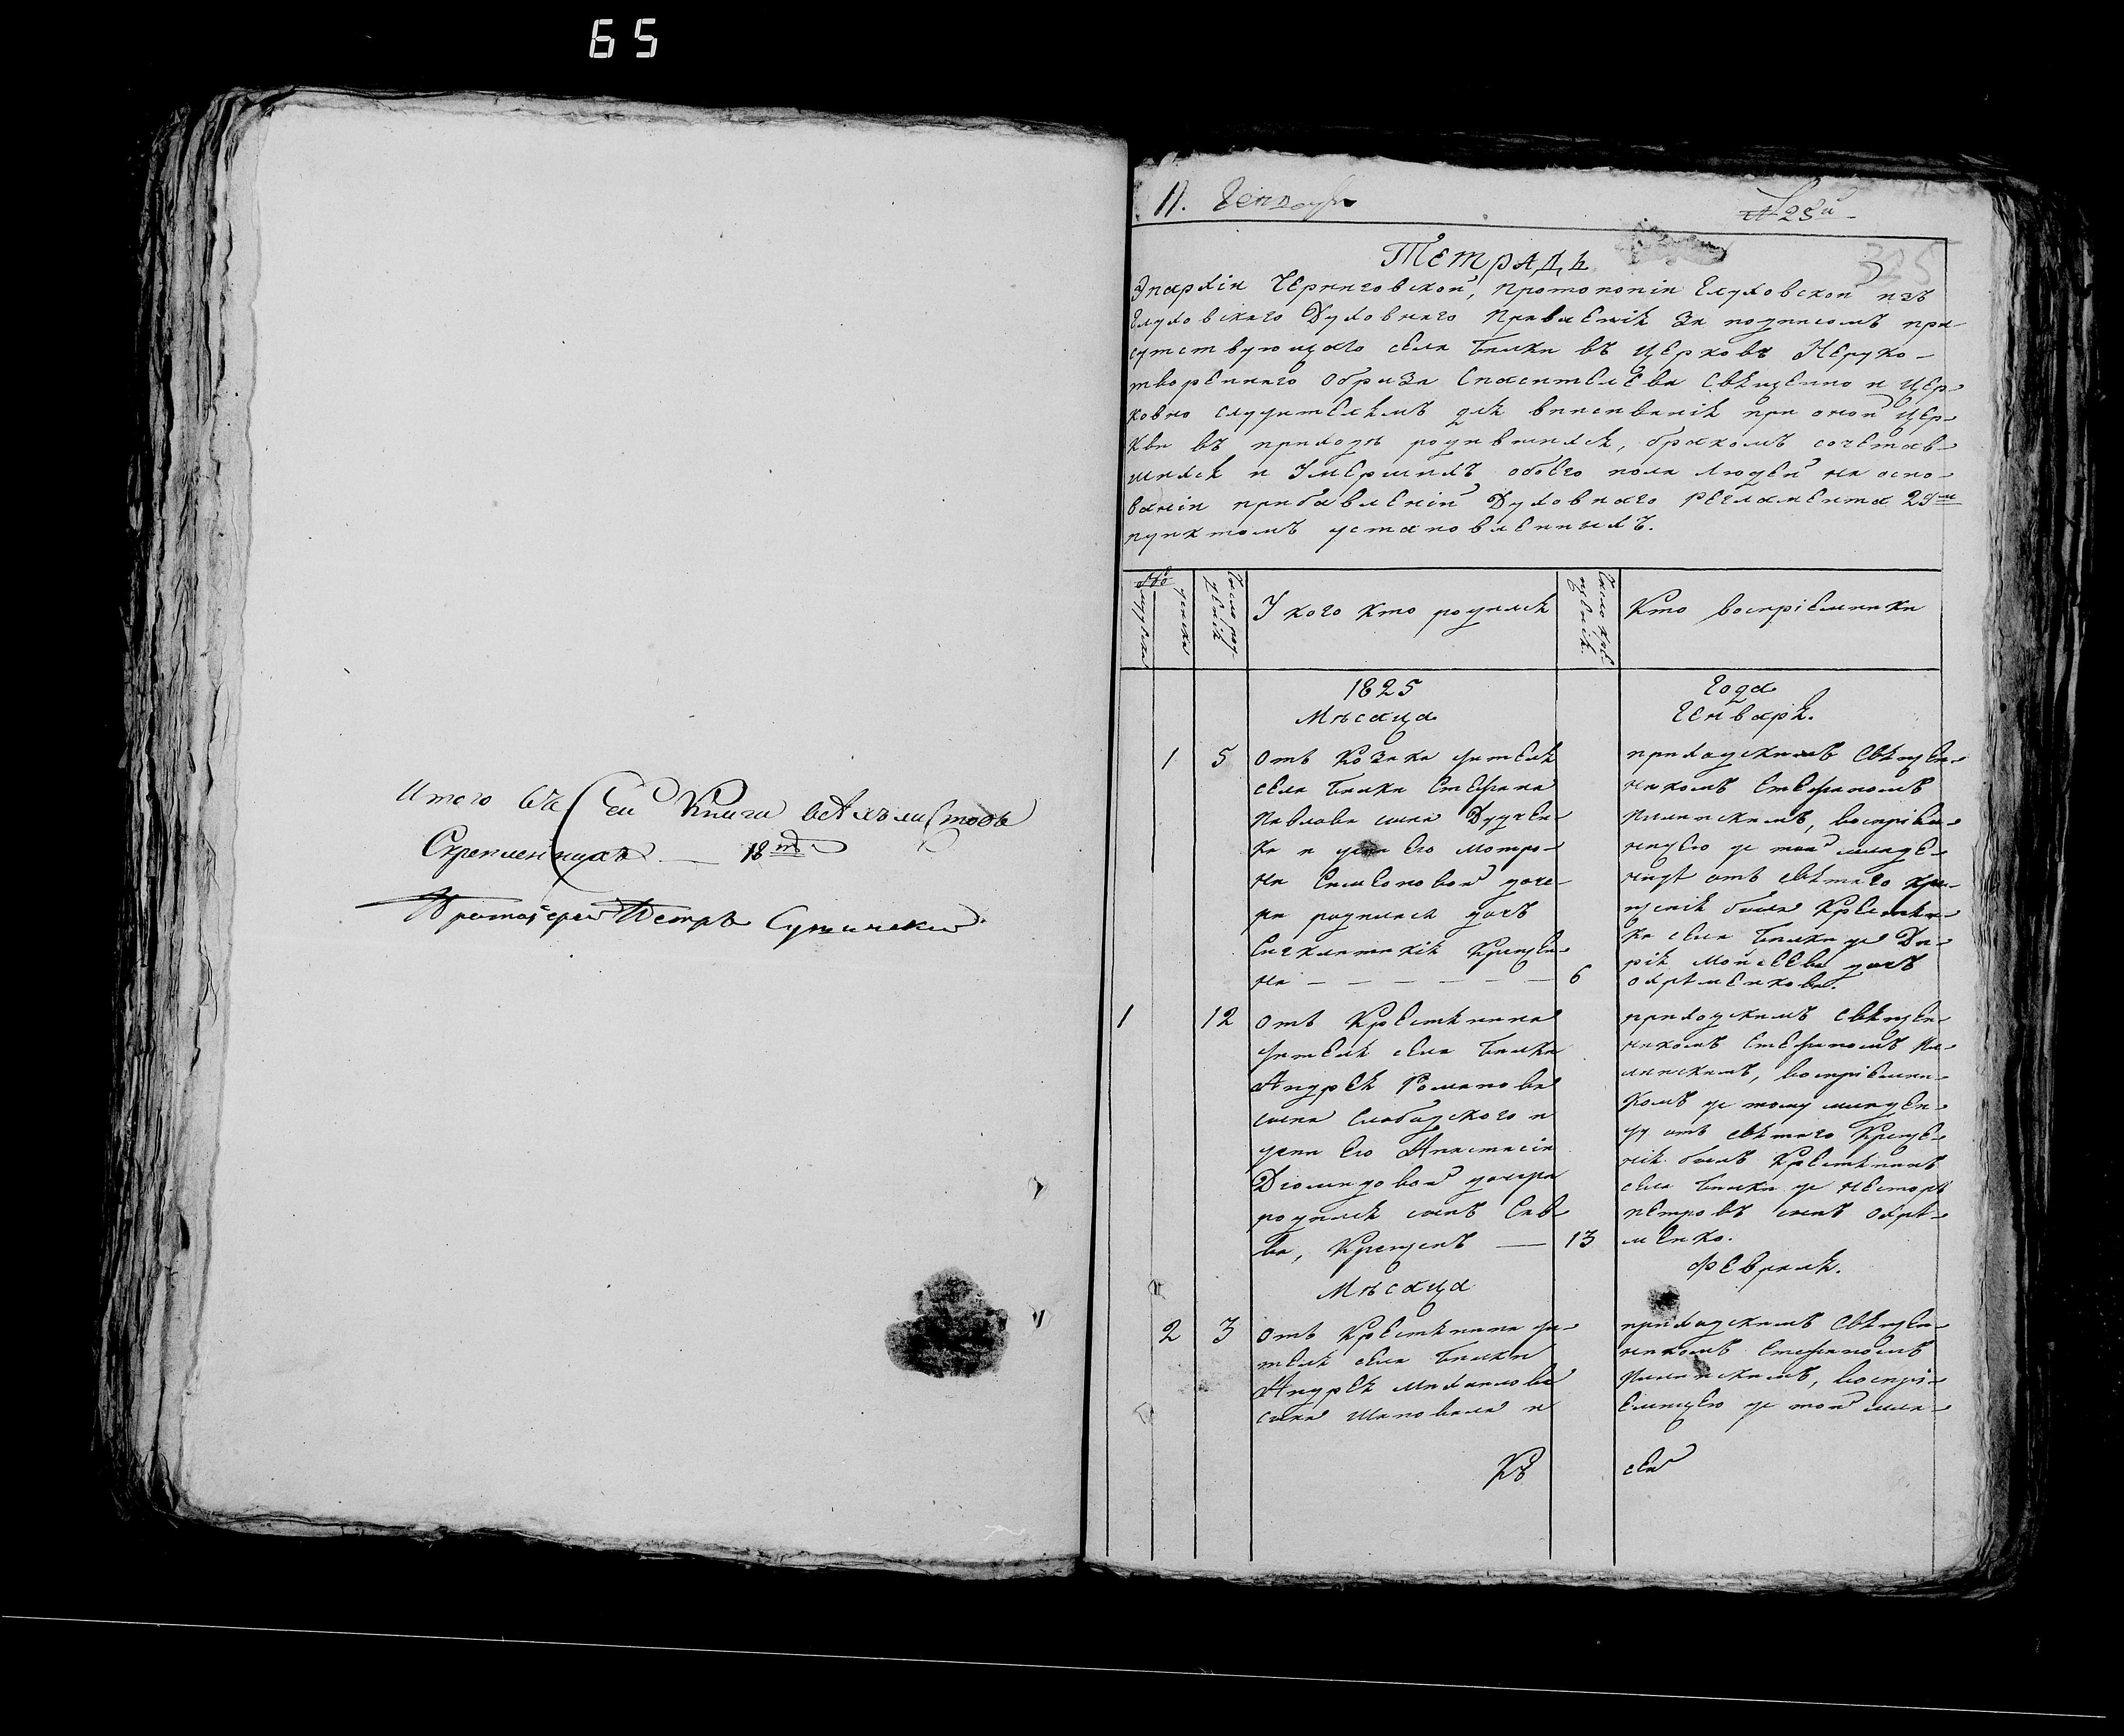 65
Итого въ Сей Книги всѣхъ листовъ
Скрепленныхъ — 18ть
Протоіерей Петръ
11.
№ 28й
325
Тетрадь
Эпархіи Черниговской, протопопіи Глуховской изъ
Глуховскаго Духовнаго Правленія за подписомъ при-
сутствующаго села Билки въ церковь Неруко-
твореннаго Образа Спасителева Священно и Цер-
ковно служителямъ для вписыванія при оной Цер-
кви въ приходѣ родившихся, бракомъ сочетав-
шихся и Умершихъ обоего пола людей на осно-
ваніи прибавленій Духовнаго Регламента 29м
пунктомъ установленныхъ.
№
мужеска
женска
Число рож-
денія
У кого кто родился
Число кре-
щенія.
Кто воспріемники
1825 Года
Мѣсаца Генваря.
1 5 отъ Козака жителя
села Билки Стефана
Павлова сина
ка и жени Его Мотро-
ни Симеоновой доче-
ри родилась дочь
Сигклитикія Креще-
на — — — — — — 6
приходскимъ Священ-
никомъ Стефаномъ
воспріем-
ницею же той младе-
ници отъ святаго кре-
щенія била Крестянка
села Билки же Да-
рія Мойсеева дочь
Охрѣменкова.
1 12 отъ Крестянина
жителя села Билки
Андрея Романова
сина Слободского и
жени Его Анастасіи
Діомидовой дочери
родился синъ Сав-
ва, Крещенъ — 13
приходскимъ Священ-
никомъ Стефаномъ
воспріемни-
комъ же тому младен-
цу отъ святаго Креще-
нія билъ Крестянинъ
села Билки же Несторъ
Петровъ синъ Охрѣ-
менко.
Мѣсаца Февраля.
2 3 отъ Крестянина жи-
теля села Билки
Андрея Михаилова
сина Шаповала и
приходскимъ Священ-
никомъ Стефаномъ
воспрі-
емницею же той мла-
Къ сей